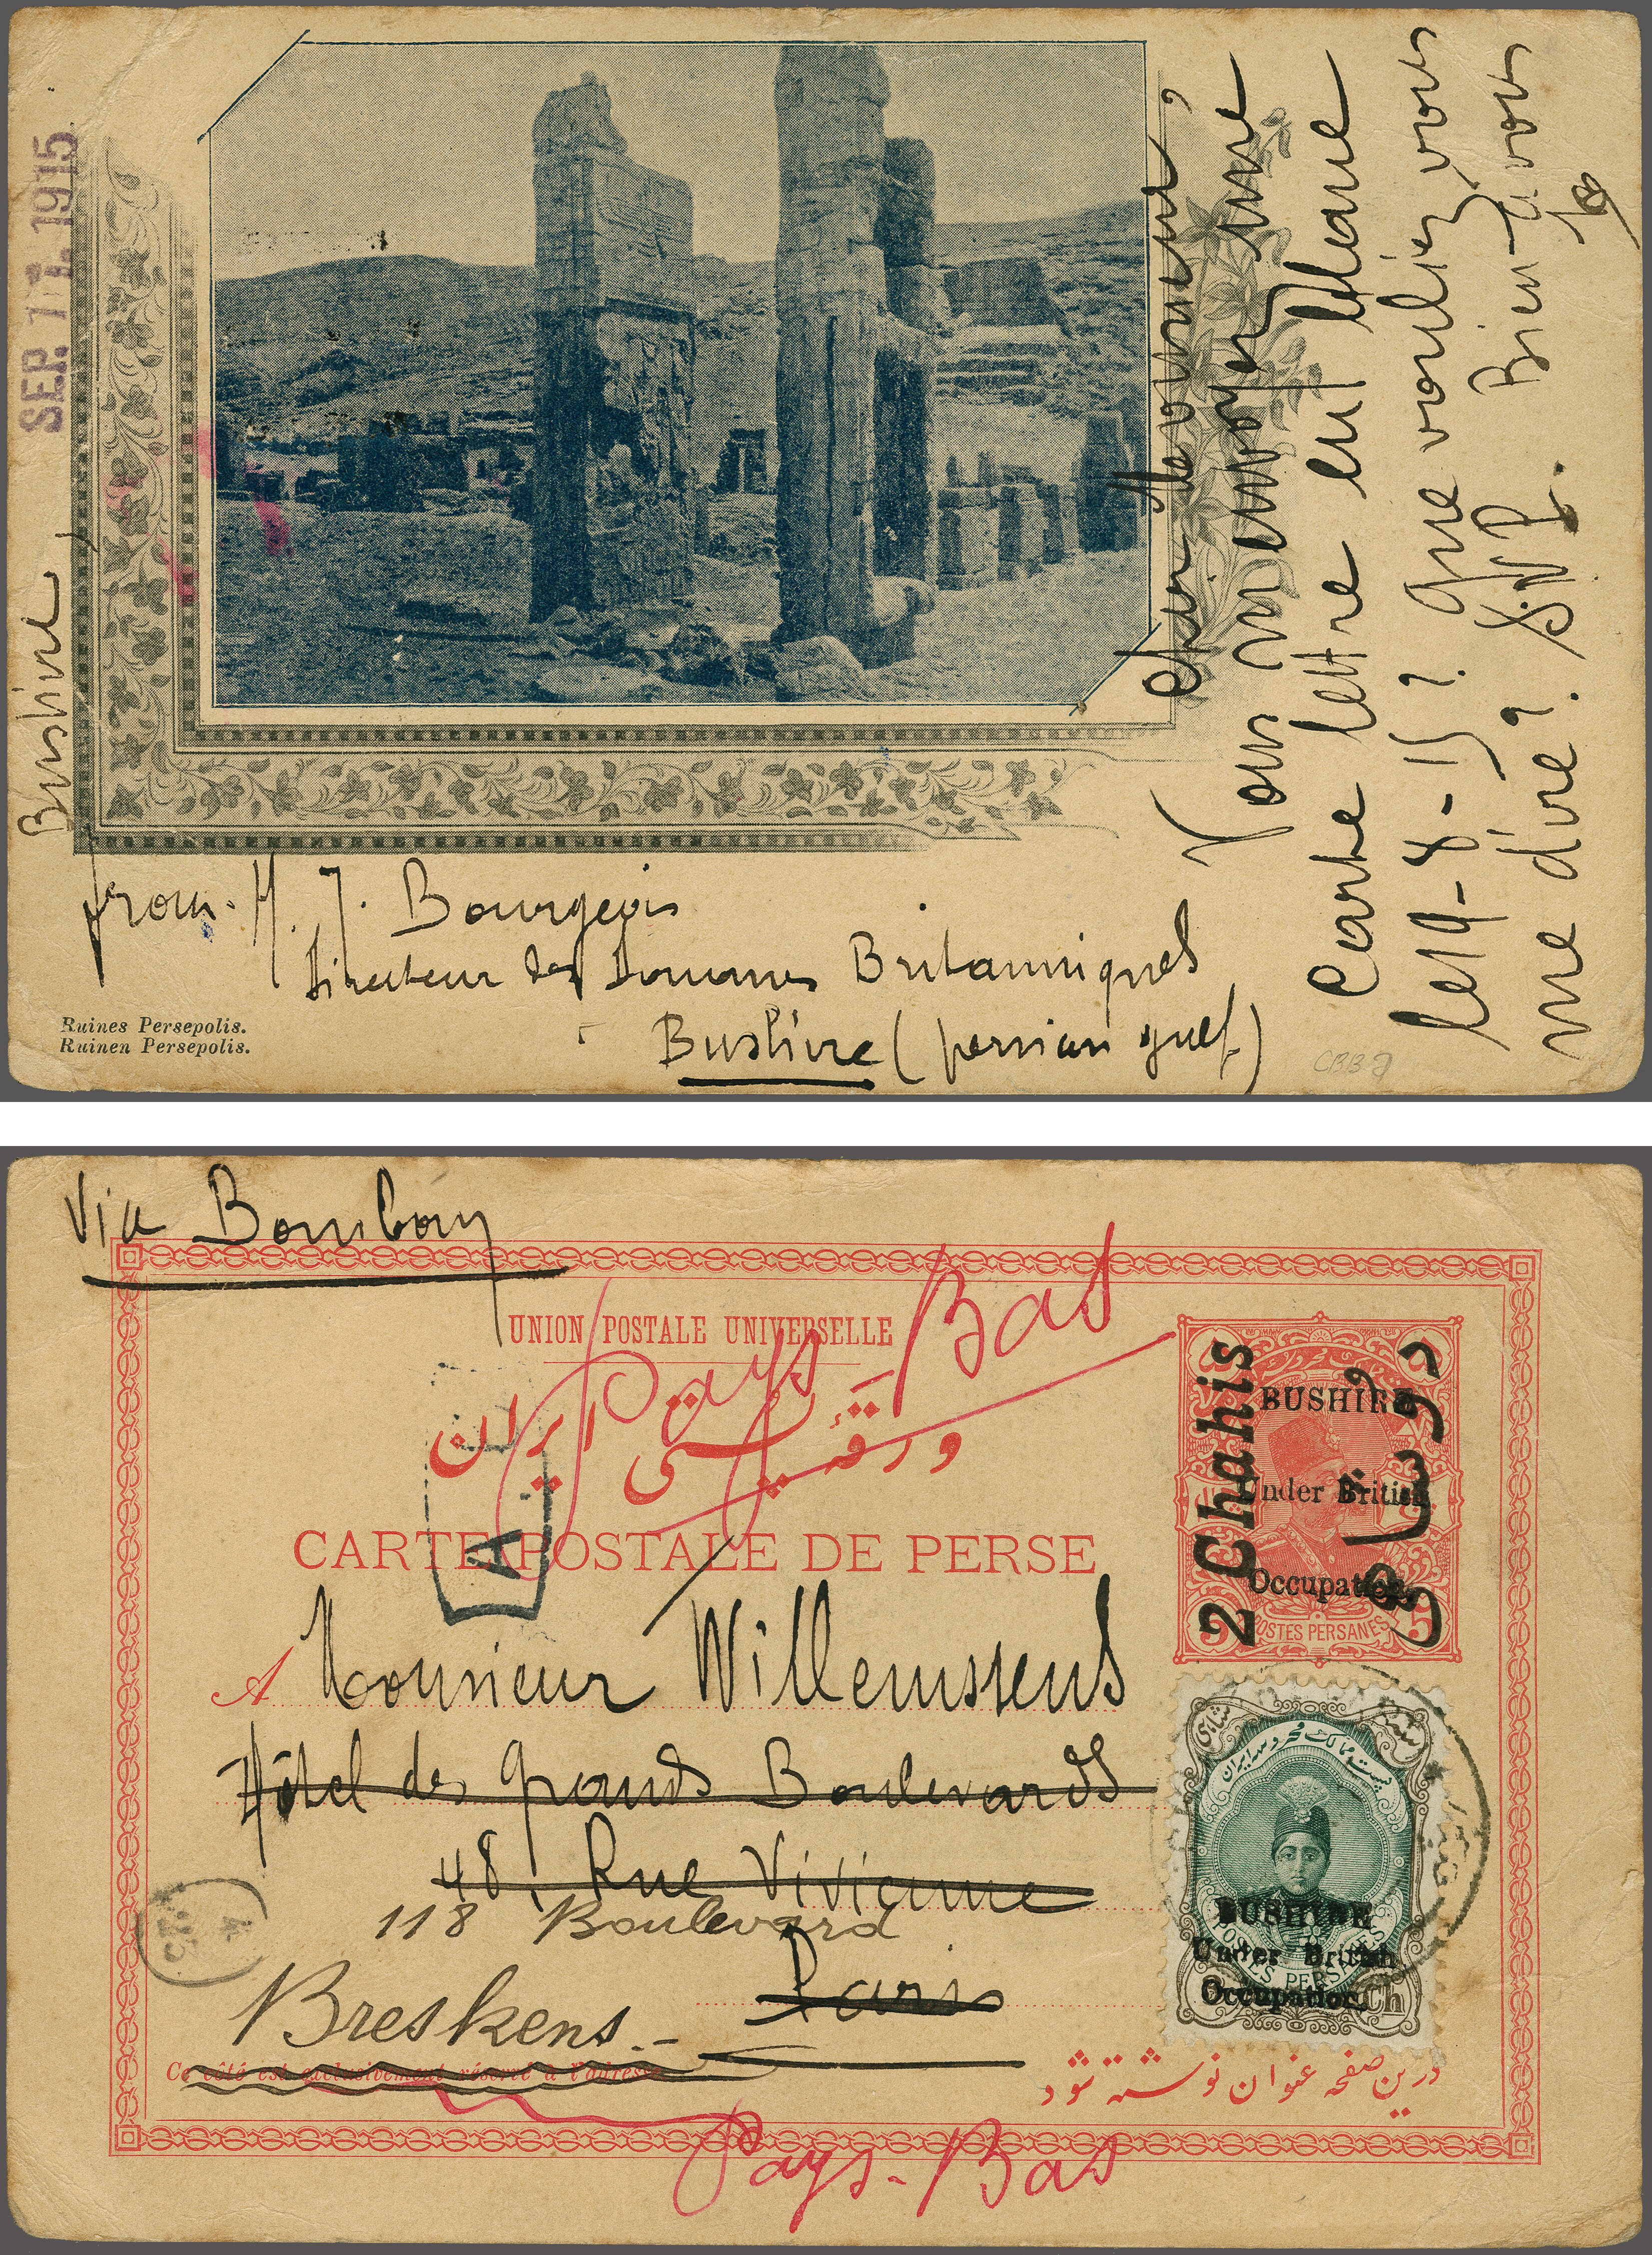 SEP. 1915
Bushire,
Cher Monsieur,
Vous m'envoyez une
Carte lettre en blanc
le 19-8-15? Que vouliez vous
me dire? S.V.P. Bien-à vous
from. H. J. Bourgeois
Directeur des Douanes Britanniques
Bushire (persian gulf)
Ruines Persepolis.
Ruinen Persepolis.
CBB
Via Bombay
UNION POSTALE UNIVERSELLE
Pays-Bas
ورقهٔ پستی ایران
CARTE POSTALE DE PERSE
A
2 Chahis
BUSHIRE
Under British
Occupation.
POSTES PERSANES
5
A Monsieur Willemssens
Hôtel des grands Boulevards
48, Rue Vivienne
118 Boulevard
Paris
Breskens.-
Ce côté est exclusivement réservé à l'adresse
BUSHIRE
Under British
Occupation.
Ch
درین صفحه عنوان نوشته شود
Pays-Bas